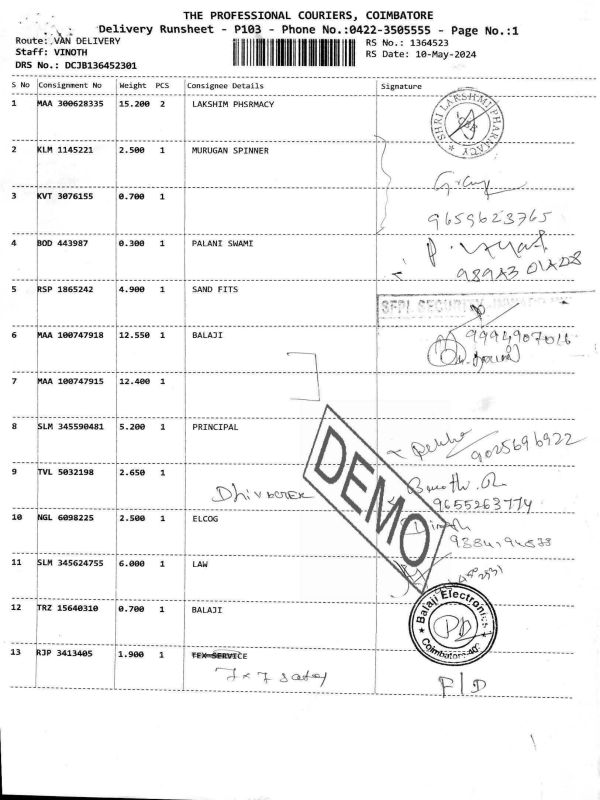 THE PROFESSIONAL COURIERS, COIMBATORE
Delivery Runsheet - P103 - Phone No.:0422-3505555 - Page No.:1
Route: VAN DELIVERY
RS No.: 1364523
Staff: VINOTH
RS Date: 10-May-2024
DRS No.: DCJB136452301
S No Consignment No Weight PCS Consignee Details Signature
1 MAA 300628335 15.200 2 LAKSHIM PHSRMACY
SHRI LAKSHMI PHARMACY
2 KLM 1145221 2.500 1 MURUGAN SPINNER
3 KVT 3076155 0.700 1
9659623765
4 BOD 443987 0.300 1 PALANI SWAMI
5 RSP 1865242 4.900 1 SAND FITS
SFPL SECURITY
6 MAA 100747918 12.550 1 BALAJI
7 MAA 100747915 12.400 1
8 SLM 345590481 5.200 1 PRINCIPAL
9025696922
9 TVL 5032198 2.650 1
9655263774
10 NGL 6098225 2.500 1 ELCOG
DEMO
11 SLM 345624755 6.000 1 LAW
12 TRZ 15640310 0.700 1 BALAJI
Balaji Electronics
Coimbatore
13 RJP 3413405 1.900 1 TEX SERVICE
F/D